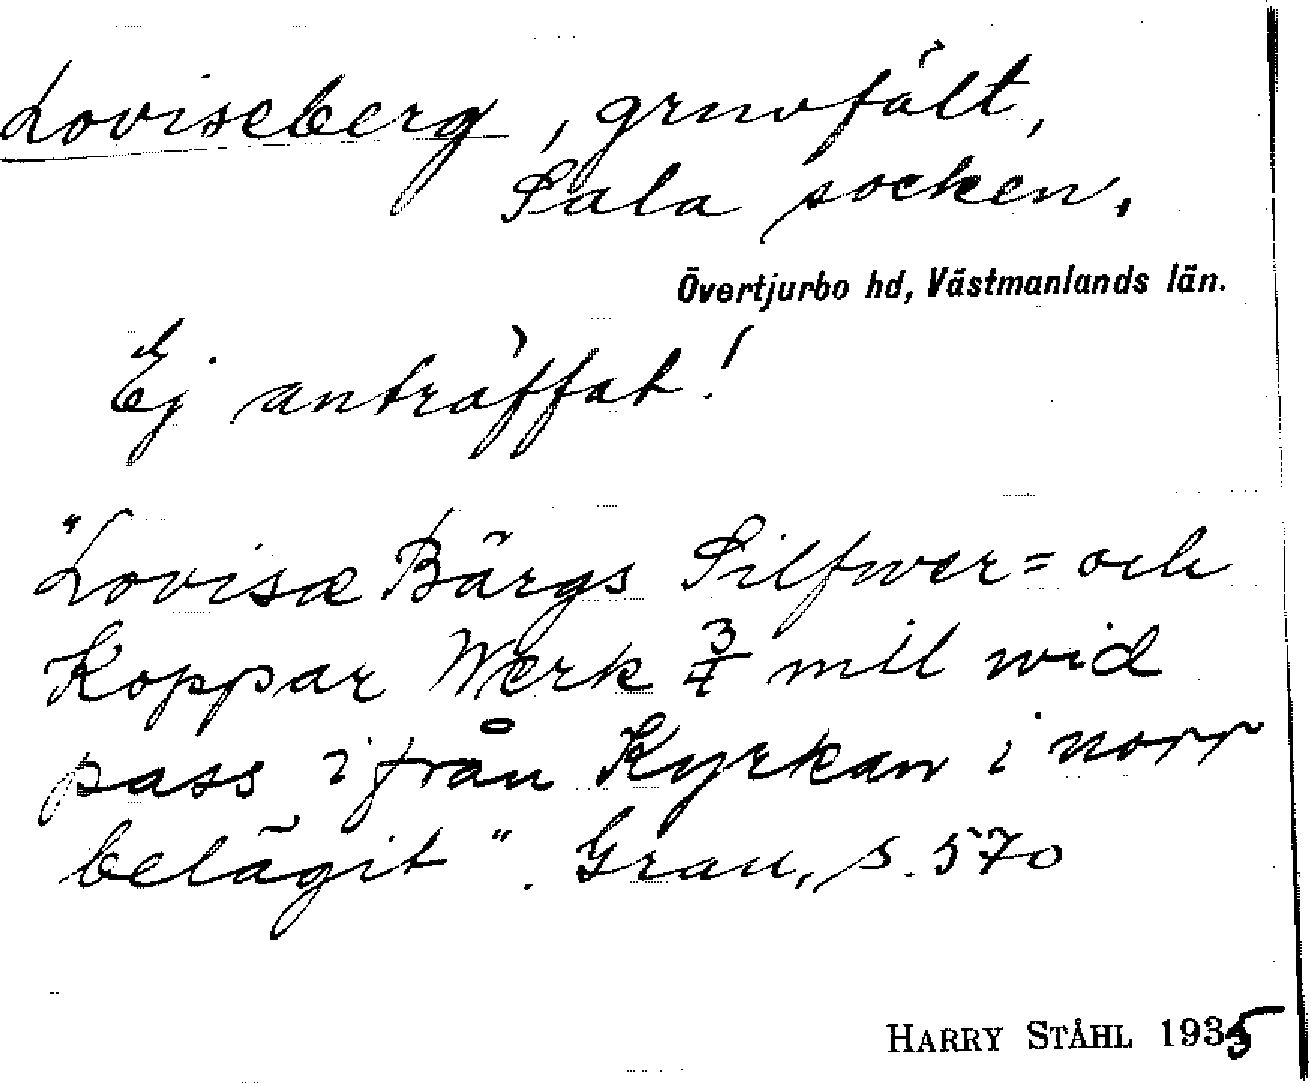 Loviseberg, gruvfält,
Sala socken.
Övertjurbo hd, Västmanlands län.
Ej anträffat!
"Lovisæ Bärgs Silfwer= och
Koppar Werk 3/4 mil wid
pass ifrån Kyrkan i norr
belägit". Grau, s. 570
HARRY STÅHL 1935